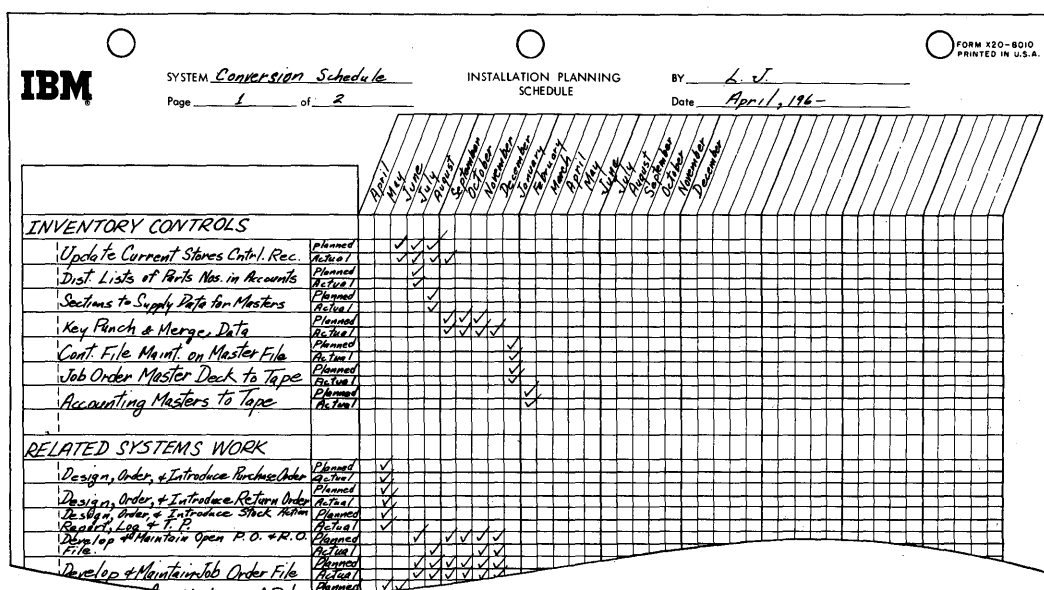 FORM X20-8010
PRINTED IN U.S.A.
IBM
SYSTEM Conversion Schedule
INSTALLATION PLANNING
SCHEDULE
BY L. J.
Page 1 of 2
Date April, 196-
April
May
June
July
August
September
October
November
December
January
February
March
April
May
June
July
August
September
October
November
December
INVENTORY CONTROLS
Update Current Stores Cntrl. Rec. Planned
Actual
Dist. Lists of Parts Nos. in Accounts Planned
Actual
Sections to Supply Data for Masters Planned
Actual
Key Punch & Merge Data Planned
Actual
Cont. File Maint. on Master File Planned
Actual
Job Order Master Deck to Tape Planned
Actual
Accounting Masters to Tape Planned
Actual
RELATED SYSTEMS WORK
Design, Order, & Introduce Purchase Order Planned
Actual
Design, Order, & Introduce Return Order Planned
Actual
Design, Order, & Introduce Stock Action Planned
Report, Log & T. P. Actual
Develop & Maintain Open P.O. & R.O. Planned
File. Actual
Develop & Maintain Job Order File Planned
Actual
Planned